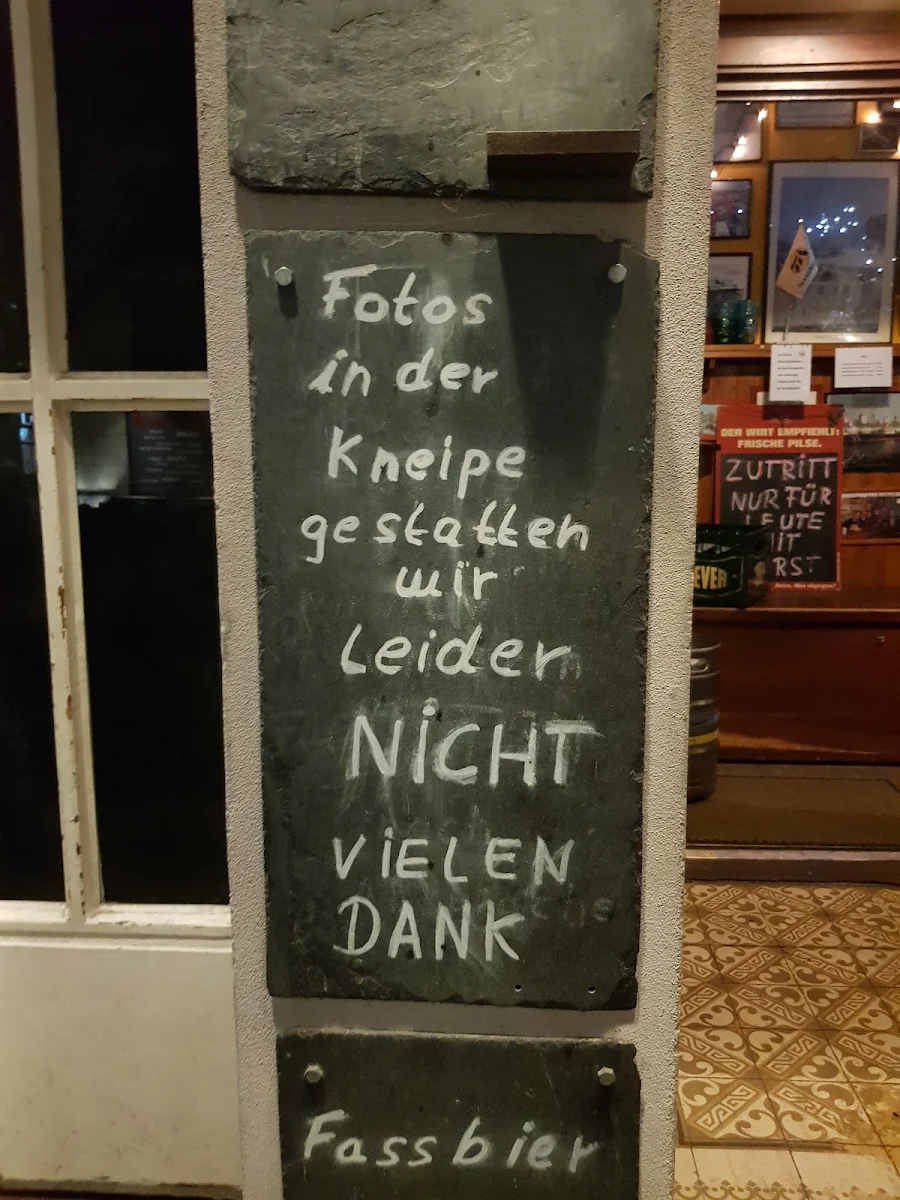 Fotos
in der
Kneipe
gestatten
wir
Leider
NiCHT
ViELEN
DANK
Fassbier
DER WIRT EMPFIEHLT:
FRISCHE PILSE.
ZUTRITT
NUR FÜR
LEUTE
IT
RST
EVER